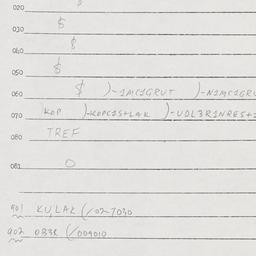 020 $
030 $
040 $
050 $
060 $ )-1MC1GRUT )-N1MC1GRU
070 KOP )-KOPC1S+LAK )-U2L3R1NRES+1
080 TREF
081 O
901 KU,LAK (/02-7030
902 0338 (/009010